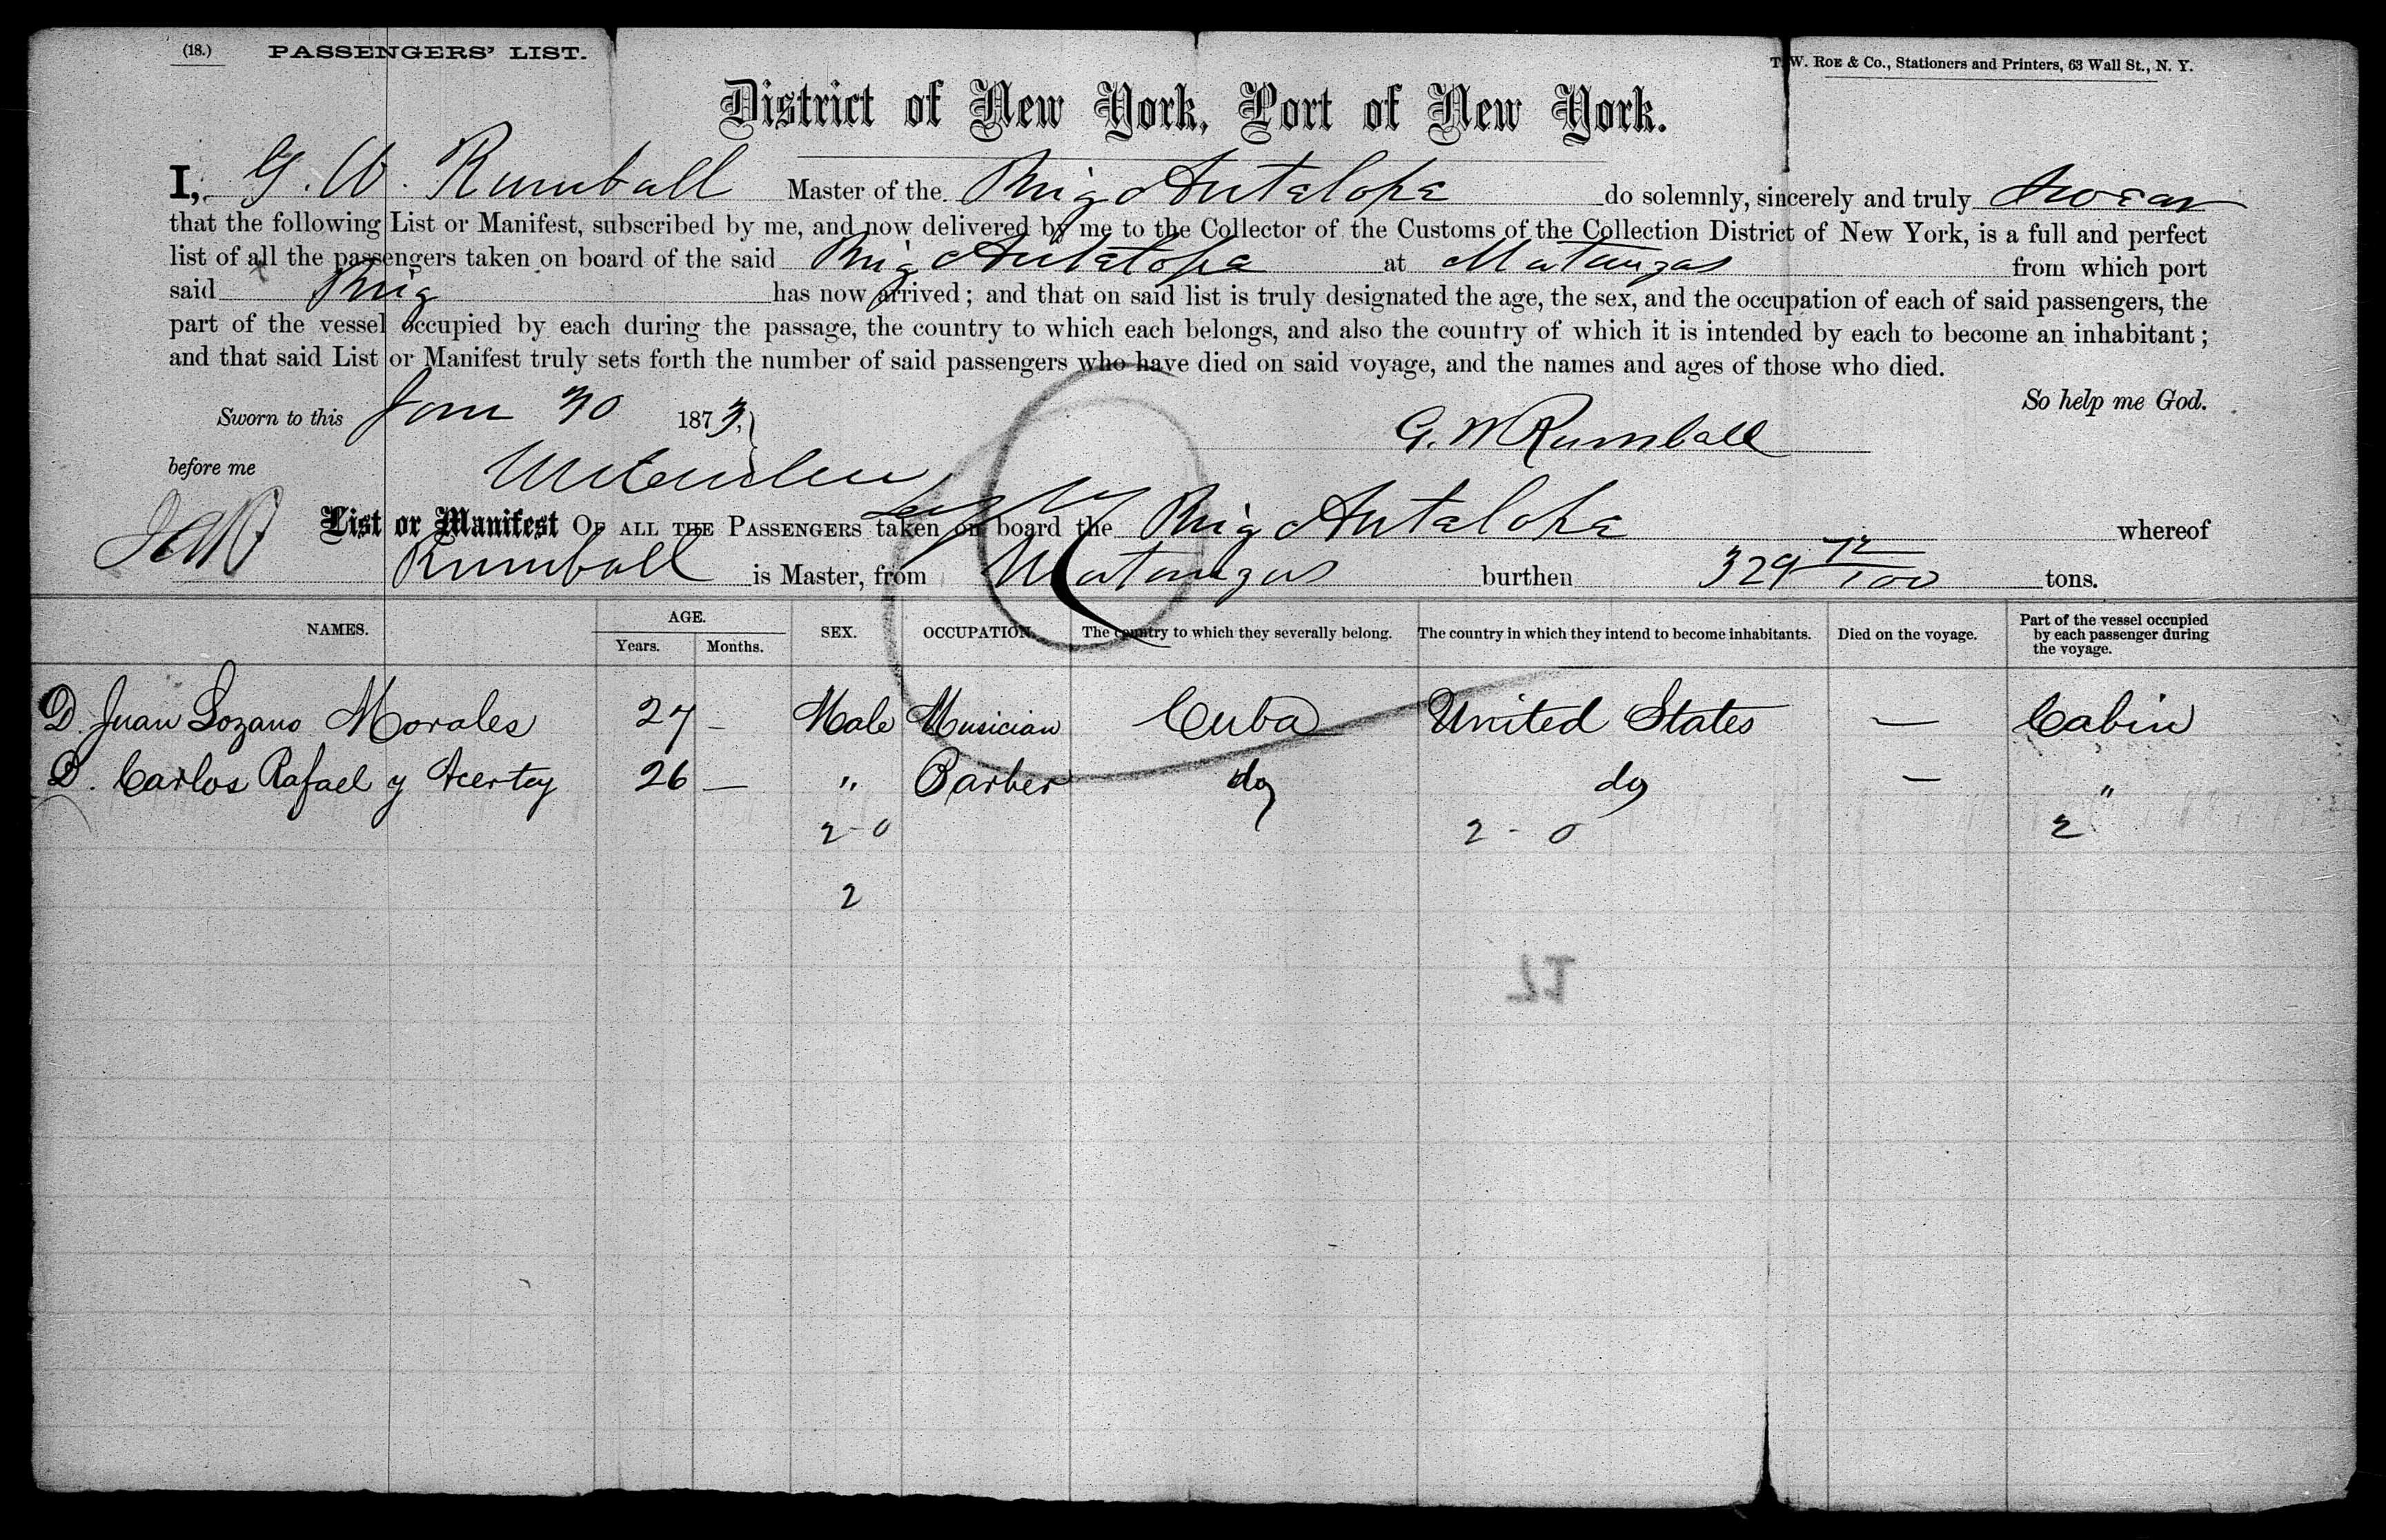 (18.) PASSENGERS' LIST.
T. W. ROE & Co., Stationers and Printers, 63 Wall St., N. Y.
District of New York, Port of New York.
I, G. W. Rumball Master of the Brig Antelope do solemnly, sincerely and truly swear
that the following List or Manifest, subscribed by me, and now delivered by me to the Collector of the Customs of the Collection District of New York, is a full and perfect
list of all the passengers taken on board of the said Brig Antelope at Matanzas from which port
said Brig has now arrived; and that on said list is truly designated the age, the sex, and the occupation of each of said passengers, the
part of the vessel occupied by each during the passage, the country to which each belongs, and also the country of which it is intended by each to become an inhabitant;
and that said List or Manifest truly sets forth the number of said passengers who have died on said voyage, and the names and ages of those who died.
So help me God.
Sworn to this Jan 30 1873,
G. W Rumball
before me
List or Manifest OF ALL THE PASSENGERS taken on board the Brig Antelope whereof
Rumball is Master, from Matanzas burthen 329 72/100 tons.
NAMES. AGE. Years. Months. SEX. OCCUPATION. The country to which they severally belong. The country in which they intend to become inhabitants. Died on the voyage. Part of the vessel occupied by each passenger during the voyage.
D. Juan Lozano Morales 27 — Male Musician Cuba United States — Cabin
D. Carlos Rafael y 26 — " Barber do do — "
2 - 0 2 - 0 2
2